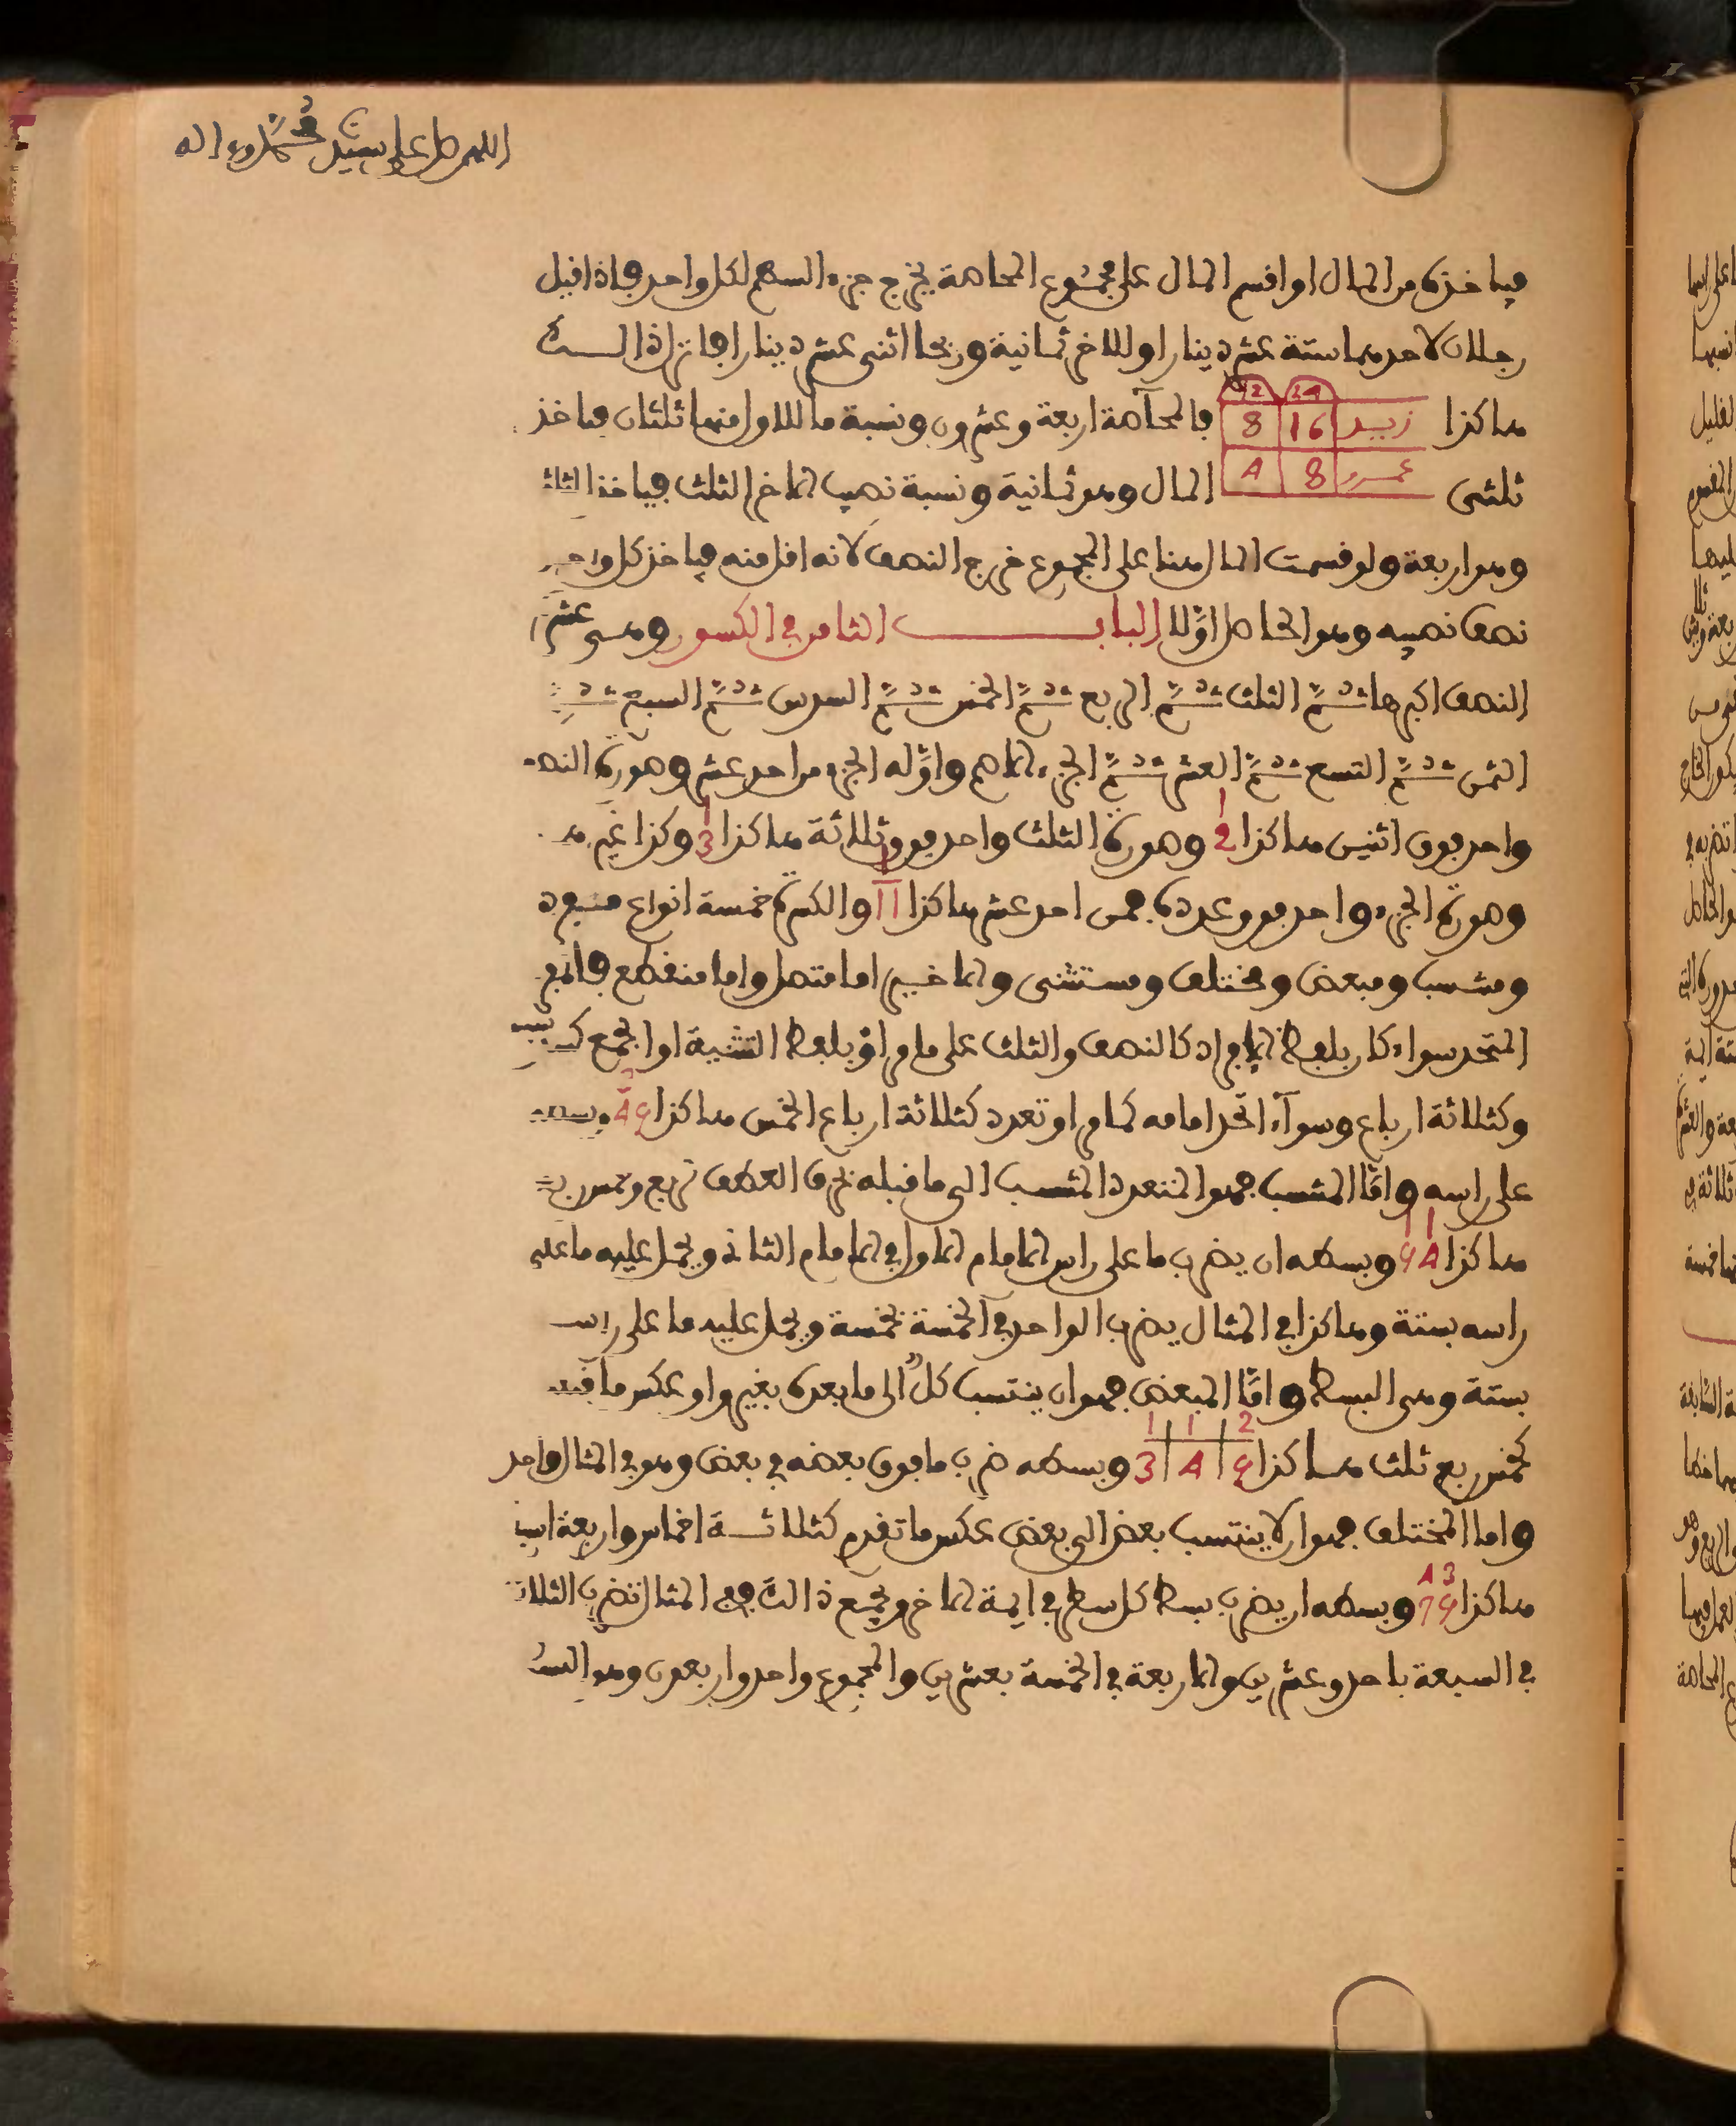 اللهم صل على سيدنا محمد وءاله
فياخذه من المال او اقسم المال على مجموع المحاصة يخرج جزء السهم لكل واحد فاذا قيل
رجلان لاحدهما ستة عشر دينارا وللاخر ثمانية وربحا اثنى عشر دينارا فانزل ذالك
هاكذا زيد 16 8 فالمحاصة اربعة وعشرون ونسبة ما للاول منها ثلثان فياخذ
12 24
ثلثى عمرو 8 4 المال وهو ثمانية ونسبة نصيب الاخر الثلث فياخذ الثلث
وهو اربعة ولو قسمت المال هنا على المجموع خرج النصف لانه اقل منه فياخذ كل واحد
نصف نصيبه وهو الحاصل اولا الباب الثامن في الكسور وهى عشرة
النصف اكبرها ثم الثلث ثم الربع ثم الخمس ثم السدس ثم السبع ثم
الثمن ثم التسع ثم العشر ثم الجزء الاصم واوله الجزء من احد عشر وصورة النصف
واحد فوق اثنين هاكذا 1 2 وصورة الثلث واحد فوق ثلاثة هاكذا 1 3 وكذا غيره
وصورة الجزء واحد فوق عدده فمن احد عشر هاكذا 1 11 والكسرة خمسة انواع مفرد
ومنتسب ومبعض ومختلف ومستثنى والاخير اما متصل واما منقطع فالمفرد
المتحد سواء كان بلفظ الافراد كالنصف والثلث على ما مر او بلفظ التثنية او الجمع
وكثلاثة ارباع وسواء اتحد امامه كما مر او تعدد كثلاثة ارباع الخمس هاكذا
على راسه واما المنتسب فهو المتعدد المنتسب الى ما قبله بحرف العطف كربع وخمس ربع
هاكذا 1 1 5 4 وبسطه ان يضرب ما على راس الامام الاول في الامام الثاني ويحمل عليه ما على
راسه بستة وهاكذا في المثال يضرب الواحد في الخمسة بخمسة ويحمل عليه ما على راس
بستة وهى البسط واما المبعض فهو ان ينتسب كل الى ما بعده بغير واو عكس ما قبله
كخمس ربع ثلث هاكذا 1 1 2 3 4 5 وبسطه ضرب ما فوق بعضه في بعض وهو في المثال واحد
واما المختلف فهو ان لا ينتسب بعض الى بعض عكس ما تقدم كثلاثة اخماس واربعة اسباع
هاكذا 4 3 7 5 وبسطه ان يضرب بسط كل سطر في ايمة الاخر ويجمع ذالك ففي المثال تضرب الثلاثة
في السبعة باحد وعشرين والاربعة في الخمسة بعشرين والمجموع واحد واربعون وهو البسط